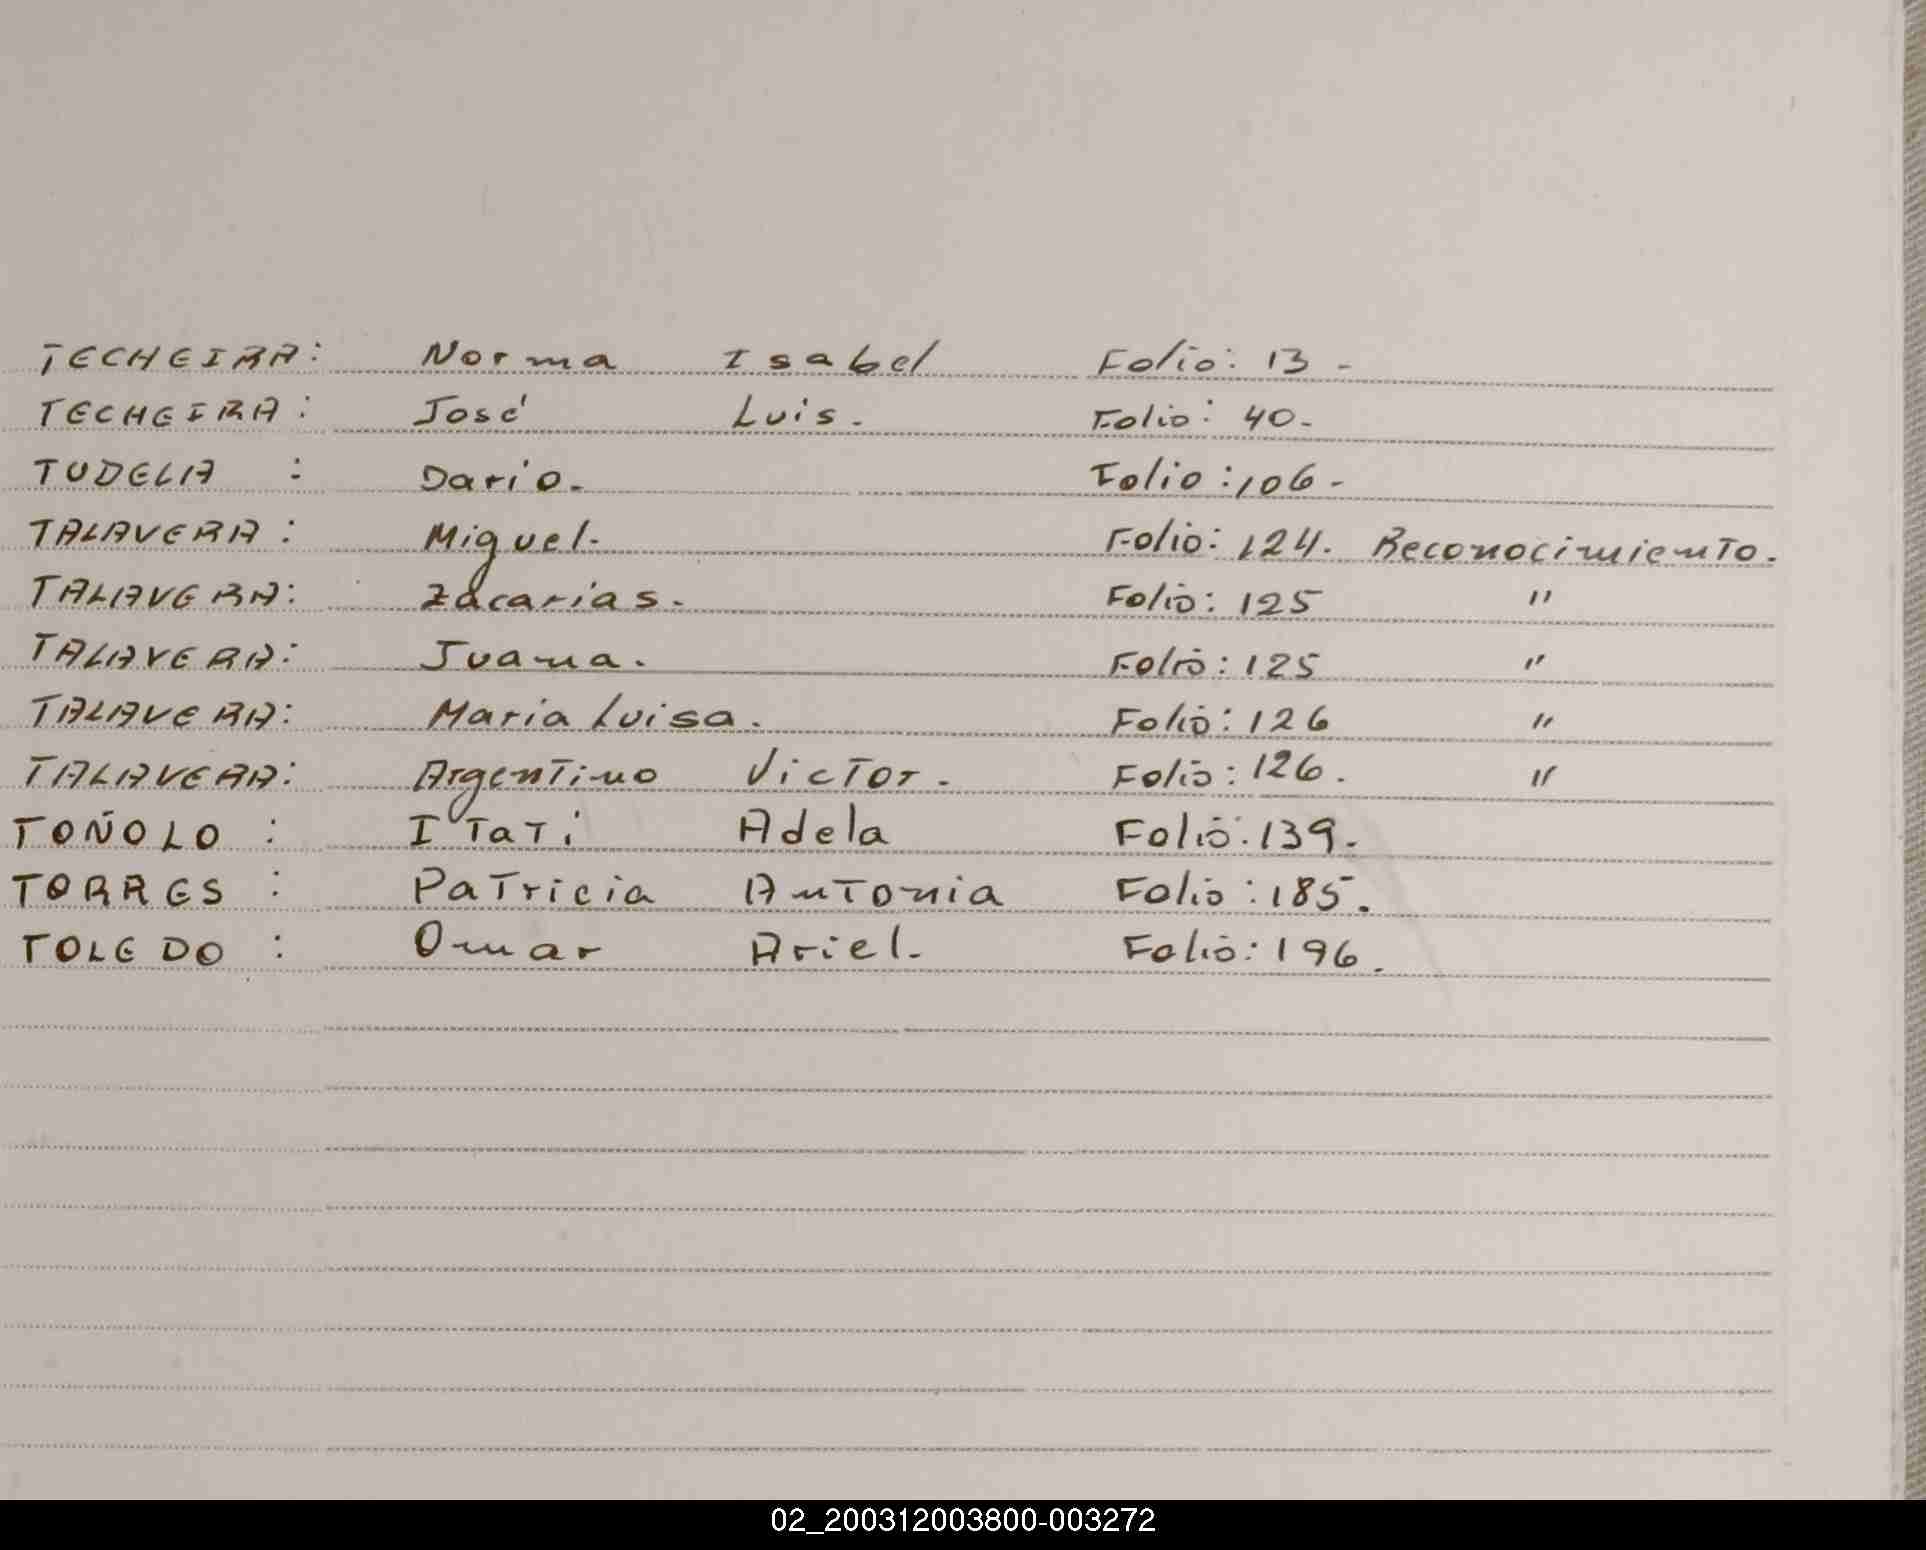 TECHEIRA: Norma Isabel Folio: 13 -
TECHEIRA: José Luis. Folio: 40.-
TUDELA : Dario.- Folio: 106.-
TALAVERA: Miguel.- Folio: 124. Reconocimiento.
TALAVERA: Zacarias.- Folio: 125 "
TALAVERA: Juana. Folio: 125 "
TALAVERA: Maria Luisa. Folio: 126 "
TALAVERA: Argentino Victor. Folio: 126. "
TOÑOLO : Itati Adela Folio: 139.
TORRES : Patricia Antonia Folio: 185.
TOLEDO : Omar Ariel. Folio: 196.
02_200312003800-003272